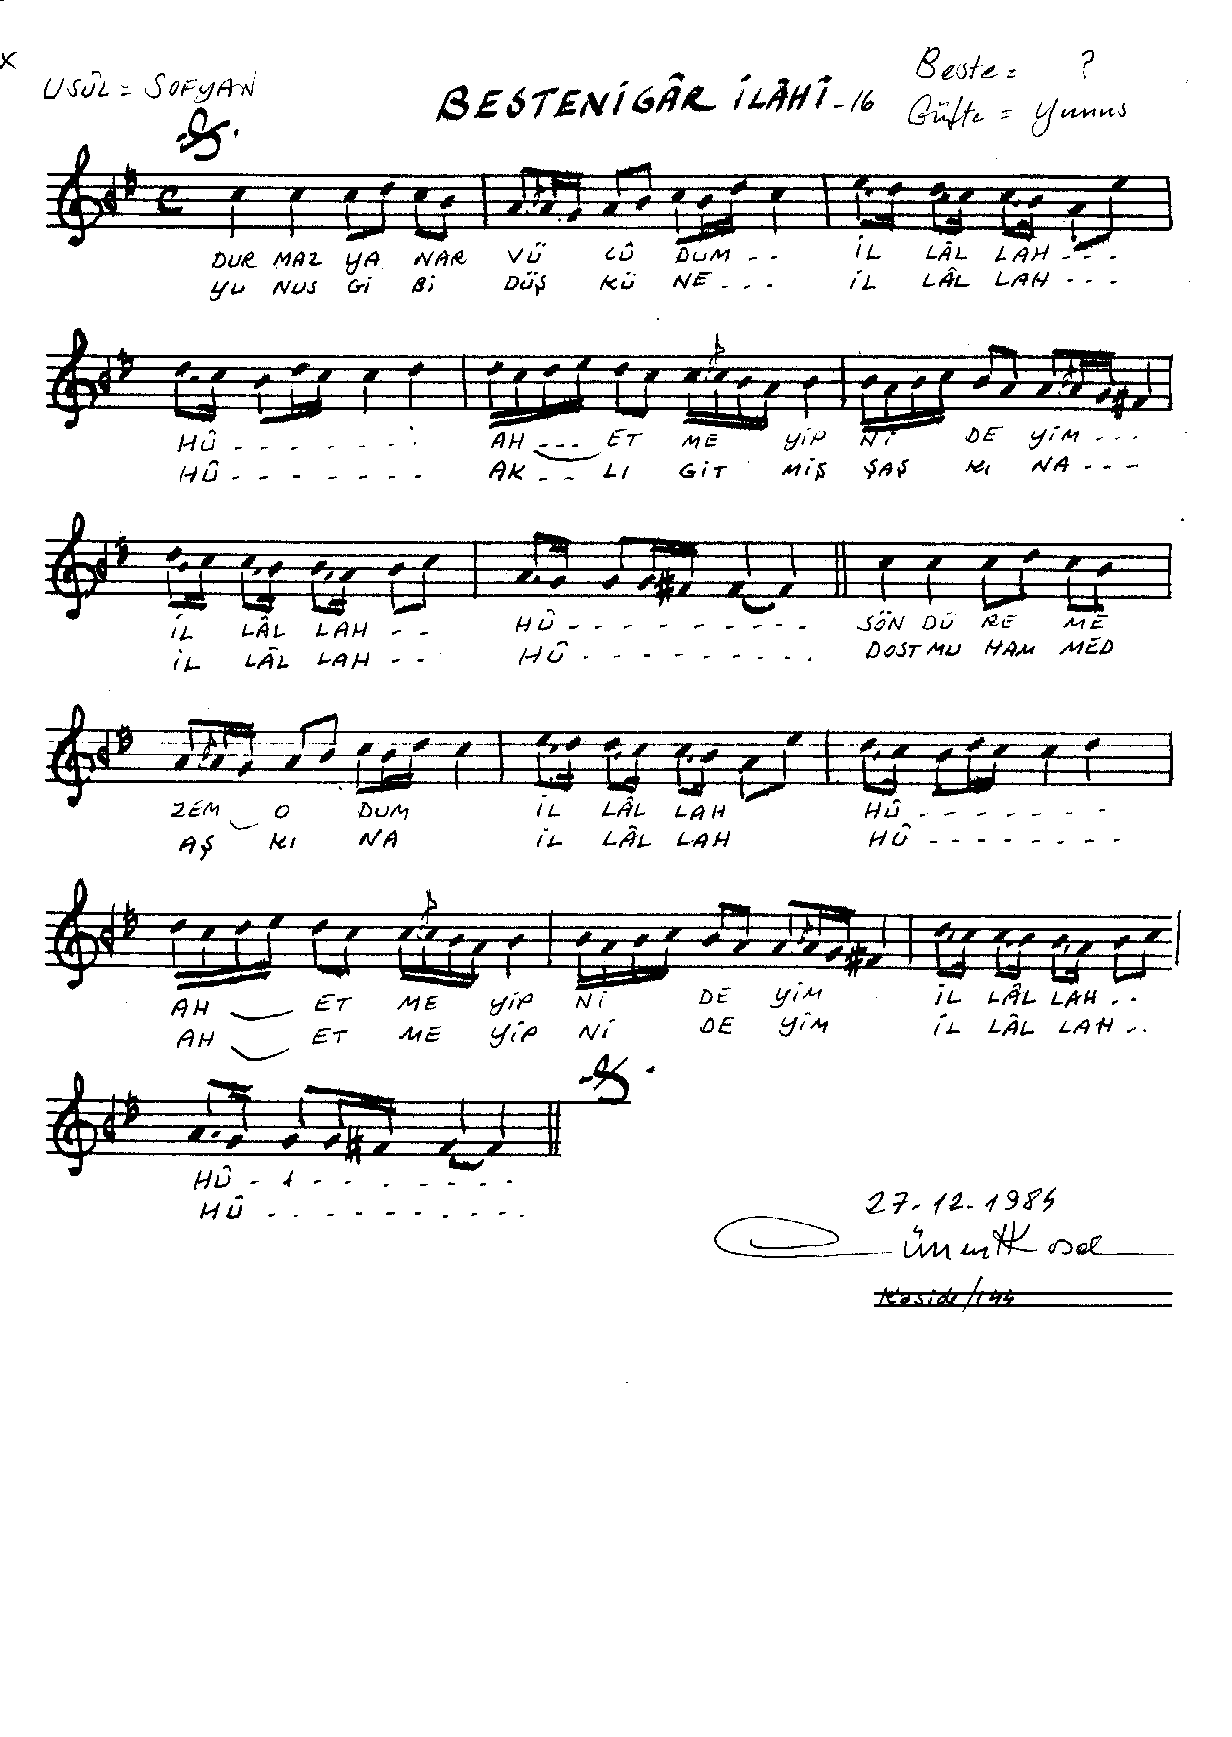 x
USÛL = SOFYAN
BESTENİGÂR İLÂHÎ - 16
Beste = ?
Güfte = Yunus
DUR MAZ YA NAR VÜ CÛ DUM - - İL LÂL LAH - - -
YU NUS Gİ Bİ DÜŞ KÜ NE - - - İL LÂL LAH - - -
HÛ - - - - - - - AH - - - ET ME YİP Nİ DE YİM - - -
HÛ - - - - - - - AK - - LI GİT MİŞ ŞAŞ KI NA - - -
İL LÂL LAH - - HÛ - - - - - - - - - SÖN DÜ RE ME
İL LÂL LAH - - HÛ - - - - - - - - - DOST MU HAM MED
ZEM O DUM İL LÂL LAH HÛ - - - - - - -
AŞ KI NA İL LÂL LAH HÛ - - - - - - -
AH ET ME YİP Nİ DE YİM İL LÂL LAH - -
AH ET ME YİP Nİ DE YİM İL LÂL LAH - -
HÛ - - - - - - - -
HÛ - - - - - - - - -
27-12-1984
Cüneyt Kosal
Kaside/144